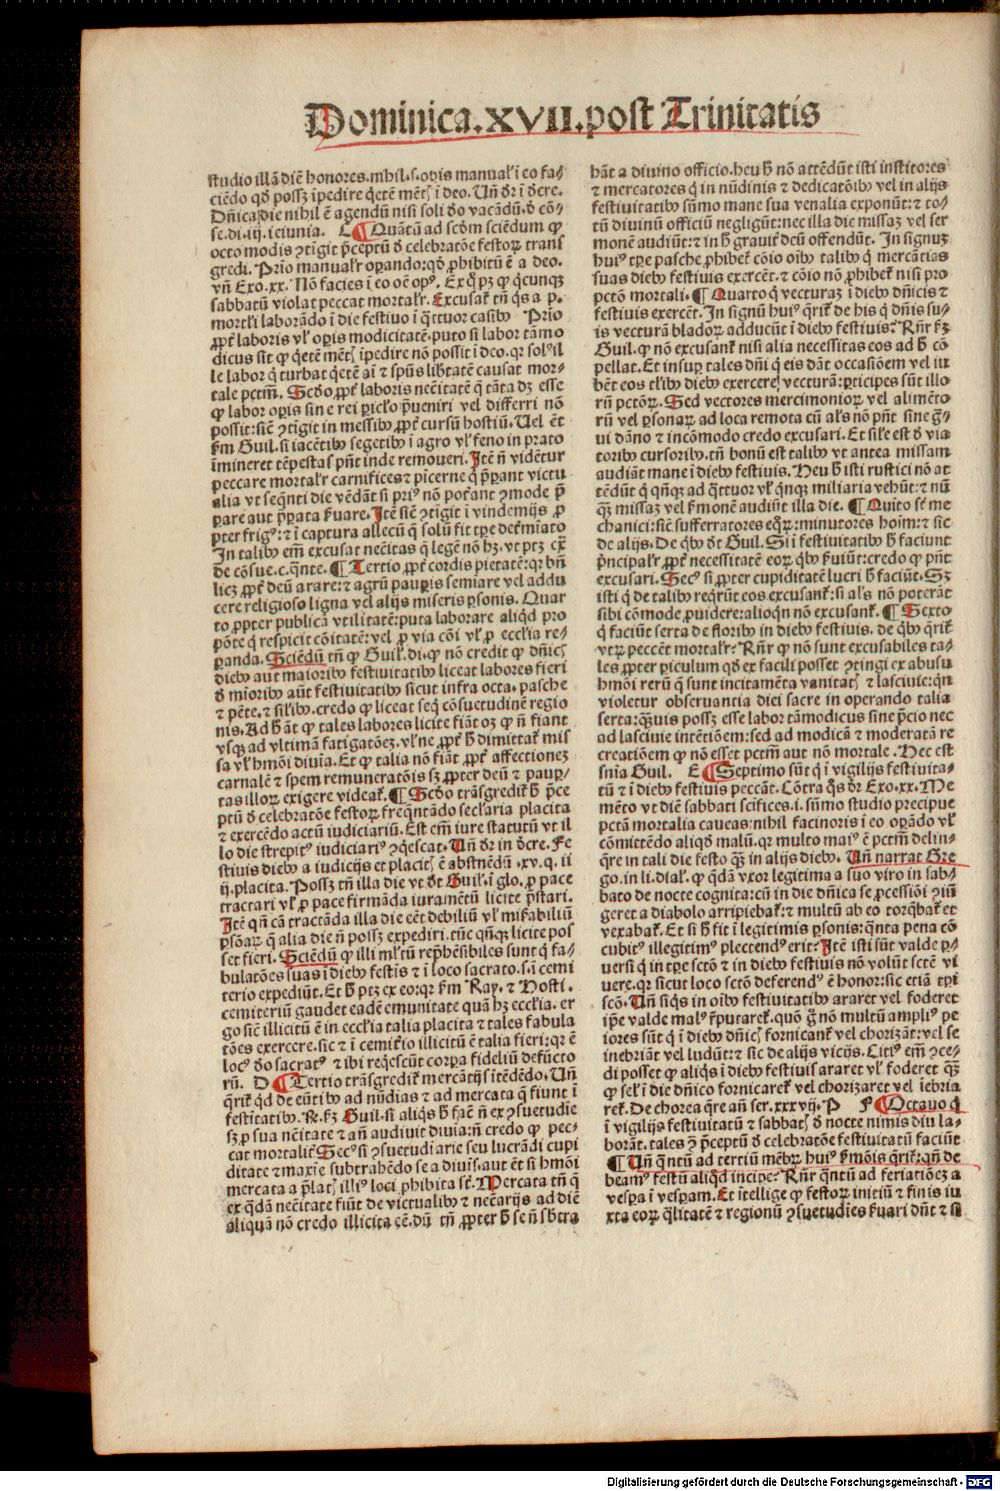 Dominica.XVII.post Trinitatis
studio illā diē honores.nihil.s.opis manual'i eo fa-
ciēdo qd possꝫ īpedire q̄tē mēt͛ i deo. Vn̄ dr̄ i dcre.
Dn̄ica die nihil ē agendū nisi soli d̓o vacādū.d̓ cō-
se.di.iij.ieiunia. C ¶ Quātū ad scd̓m sciēdum ꝙ
octo modis ꝯtigit p̄ceptū d̓ celebratōe festoꝝ trans
gredi. Prīo manualr̓ oꝑando:qd̓ ꝓhibitū ē a deo.
vn̄ Exo.xx. Nō facies i eo oē opꝰ. Ex q̊ pꝫ ꝙ q̓cunqꝫ
sabbatū violat peccat mortalr̓. Excusat̓ tn̄ q̓s a p.
mortl̓i laborādo i die festiuo i q̓ttuor casibꝰ Prīo
ꝓpt̓ laboris vl̓ oꝑis modicitatē.puto si labor tāmo
dicus sit ꝙ q̓etē mēt͛ īpedire nō possit i deo.qr̓ solꝰ il
le labor q̓ turbat q̓etē aī ⁊ spūs lib̓tatē causat mor-
tale pctm̄. Scd̓o ꝓpt̓ laboris necitatē q̓ tāta dꝫ esse
ꝙ labor oꝑis sine rei ꝑiclo p̄ueniri vel differri nō
possit:sic̄ ꝯtigit in messibꝰ ꝓpt̓ cursū hostiū. Uel ēt
ẜm Guil.si iacētibꝰ segetibꝰ i agro vl̓ feno in prato
īmineret tēpestas pn̄t inde remoueri. Itē n̄ vidētur
peccare mortalr̓ carnifices ⁊ picerne q̓ p̄ꝑant victu
alia vt seq̓nti die vēdāt si priꝰ nō poterāt ꝯmode p̄
ꝑare aut p̄ꝑata ẜuare. Itē sic̄ ꝯtigit i vindemijs ꝓ
pter frigꝰ:⁊ i captura allecū q̓ solū fit tꝑe det̓miato
In talibꝰ em̄ excusat necitas q̓ legē nō hꝫ.vt ptꝫ ex̄
de cōsue.c.q̓nte. ¶ Tertio ꝓpt̓ cordis pietatē:qr̓ bn̄
licꝫ ꝓpt̓ deū arare:⁊ agrū paupis semiare vel addu
cere religioso ligna vel alijs miseris ꝑsonis. Quar
to ꝓpter publicā vtilitatē:puta laborare aliqd̓ pro
pōte q̓ respicit cōitatē:vel ꝓ via cōi vl̓ ꝓ eccl̓ia re-
ꝑanda. Sciēdū tn̄ ꝙ Guil̓.di.ꝙ nō credit ꝙ dn̄ic͛
diebꝰ aut maioribꝰ festiuitatibꝰ liceat labores fieri
d̓ mioribꝰ aūt festiuitatibꝰ sicut infra octa. pasche
⁊ pēte.⁊ sil̓ibꝰ.credo ꝙ liceat seq̓ cōsuetudinē regio
nis. Ad h̓ āt ꝙ tales labores licite fiāt oꝫ ꝙ n̄ fiant
vsqꝫ ad vltimā fatigatōeꝫ.vl̓ ne ꝓpt̓ h̓ dimittat̓ mis
sa vl̓ hmōi diuīa. Et ꝙ talia nō fiāt ꝓpt̓ affectioneꝫ
carnalē ⁊ spem remuneratōis sꝫ ꝓpter deū ⁊ pauꝑ-
tas illoꝝ exigere videat̓. ¶ Scd̓o trāsgredit̓ h̓ p̄ce
ptū d̓ celebratōe festoꝝ freq̓ntādo secl̓aria placita
⁊ exercēdo actū iudiciariū. Est em̄ iure statutū vt il
lo die strepitꝰ iudiciariꝰ ꝯq̓escat. Vn̄ dr̄ in dcre. Fe
stiuis diebꝰ a iudicijs et placit͛ ē abstnēdū.xv.q.ii
ij.placita. Possꝫ tn̄ illa die vt dt̓ Guil.i glo.ꝓ pace
tractari vl̓ ꝓ pace firmāda iuramētū licite p̄stari.
Itē qn̄ cā tractāda illa die eēt debiliū vl̓ mis̓abiliū
ꝑsōaꝝ q̓ alia die n̄ possꝫ expediri.tūc qn̄qꝫ licite pos
set fieri. Sciēdū ꝙ illi ml̓tū rep̄hēsibiles sunt q̓ fa-
bulatōes suas i diebꝰ festis ⁊ i loco sacrato.s.i cemi
terio expediūt. Et h̓ ptꝫ ex eo:qr̓ ẜm Ray. ⁊ Hosti.
cemiteriū gaudet eadē emunitate quā hꝫ eccl̓ia. er
go sic̄ illicitū ē in eccl̓ia talia placita ⁊ tales fabula
tōes exercere.sic ⁊ i cemit̓io illicitū ē talia fieri:qr̓ ē
locꝰ d̓o sacratꝰ ⁊ ibi req̓escūt corꝑa fideliū defūcto
rū. D ¶ Tertio trāsgredit̓ mercātijs itēdēdo. Vn̄
q̓rit̓ qd̓ de eūtibꝰ ad nūdias ⁊ ad mercata q̓ fiunt i
festitatibꝰ. R̓. ẜꝫ Guil.si aliq̓s h̓ facē n̄ ex ꝯsuetudie
sꝫ ꝓ sua necitate ⁊ an̄ audiuit diuīa:n̄ credo ꝙ pec-
cat mortalit̓ Secꝰ si ꝯsuetudiarie seu lucrādi cupi
ditate ⁊ maxīe subtrahēdo se a diuīs.aut ēt si hmōi
mercata a p̄lat͛ illiꝰ loci ꝓhibita st̄. Mercata tn̄ q̓
ex qdā necitate fiūt de victualibꝰ ⁊ necārijs ad diē
aliquā nō credo illicita eē.dū tn̄ ꝓpter h̓ se n̄ sb̓tra
hāt a diuino officio.heu h̓ nō attēdūt isti institores
⁊ mercatores q̓ in nūdinis ⁊ dedicatōibꝰ vel in alijs
festiuitatibꝰ sūmo mane sua venalia exponūt:⁊ to-
tū diuinū officiū negligūt:nec illa die missaꝫ vel ser
monē audiūt:⁊ in h̓ grauit̓ deū offendūt. In signuꝫ
huiꝰ tꝑe pasche ꝓhibet̓ cōio oībꝰ talibꝰ q̓ mercātias
suas diebꝰ festiuis exercēt.⁊ cōio nō ꝓhibet̓ nisi pro
pctō mortali. ¶ Quarto q̓ vecturaꝫ i diebꝰ dn̄icis ⁊
festiuis exercēt. In signū huiꝰ q̓rit̓ de his q̓ dn̄is su-
is vecturā bladoꝝ adducūt i diebꝰ festiuis? Rn̄r ẜꝫ
Guil.ꝙ nō excusant̓ nisi alia necessitas eos ad h̓ cō
pellat. Et insuꝑ tales dn̄i q̓ eis dāt occasiōem vel iu
bēt eos tl̓ibꝰ diebꝰ exercere vecturā:ꝑticipes sūt illo
rū pctōꝝ. Sed vectores mercimonioꝝ vel alimēto
rū vel ꝑsonaꝝ ad loca remota cū al̓s nō pn̄t sine g̓ꝛa
ui dāno ⁊ incōmodo credo excusari. Et sil̓e est d̓ via
toribꝰ cursoribꝰ.tn̄ bonū est talibꝰ vt antea missam
audiāt mane i diebꝰ festiuis. Heu h̓ isti rustici nō at
tēdūt q̓ qn̄qꝫ ad q̓ttuor vl̓ q̓nqꝫ miliaria vehūt:⁊ nū
q̓ꝫ missaꝫ vel ẜmonē audiūt illa die. ¶ Quīto sūt me
chanici:sic̄ sufferratores eq̓ꝝ:minutores hoīm:⁊ sic
de alijs. De q̓bꝰ dt̓ Guil. Si i festiuitatibꝰ h̓ faciunt
p̄ncipalr̓ ꝓpt̓ necessitatē eoꝝ q̓bꝰ ẜuiūt:credo ꝙ pn̄t
excusari. Secꝰ si ꝓpter cupiditatē lucri h̓ faciūt. Sꝫ
isti q̓ de talibꝰ req̓rūt eos excusant̓:si al̓s nō poterāt
sibi cōmode ꝓuidere:alioqn̄ nō excusant̓. ¶ Sexto
q̓ faciūt serta de floribꝰ in diebꝰ festiuis. de q̓bꝰ q̓rit̓
vtꝝ peccēt mortalr̓? Rn̄r ꝙ nō sunt excusabiles ta-
les ꝓpter ꝑiculum qd̓ ex facili posset ꝯtingi ex abusu
hmōi rerū q̓ sunt incitamēta vanitat͛ ⁊ lasciuie:qn̄
violetur obseruantia diei sacre in operando talia
serta:q̓ꝫuis possꝫ esse labor tāmodicus sine p̄cio nec
ad lasciuie intētiōem:sed ad modicā ⁊ moderatā re
creatiōem ꝙ nō esset pctm̄ aut nō mortale. Hec est
sn̄ia Guil. E ¶ Septimo sūt q̓ i vigilijs festiuita-
tū ⁊ i diebꝰ festiuis peccāt. Cōtra q̓s dr̄ Exo.xx. Me
mēto vt diē sabbati scifices.i.sūmo studio precipue
pctā mortalia caueas:nihil facinoris i eo oꝑādo vl̓
cōmittēdo aliqd̓ malū.qr̓ multo maiꝰ ē pctm̄ delin-
q̓re in tali die festo q̓ꝫ in alijs diebꝰ. Vn̄ narrat Gre
go.in li.dial̓. ꝙ q̓dā vxor legitima a suo viro in sab-
bato de nocte cognita:cū in die dn̄ica se ꝓcessiōi ꝯiū
geret a diabolo arripiebat̓:⁊ multū ab eo torq̓bat̓ et
vexabat̓. Et si h̓ fit i legitimis ꝑsonis:q̓nta pena cō
cubitꝰ illegitimꝰ plectendꝰ erit? Itē isti sūt valde ꝑ-
uersi q̓ in tꝑe sctō ⁊ in diebꝰ festiuis nō volūt sctē vi
uere.qr̓ sicut loco sctō deferendꝰ ē honor:sic etiā tꝑi
sctō. Vn̄ siq̓s in oībꝰ festiuitatibꝰ araret vel foderet
ip̄e valde malꝰ r̓putaret̓.quō g̊ nō multū ampliꝰ pe
iores sūt q̓ i diebꝰ dn̄ic͛ fornicant̓ vel chorizāt:vel se
inebriāt vel ludūt:⁊ sic de alijs vicijs. Citiꝰ em̄ ꝯce-
di posset ꝙ aliq̓s i diebꝰ festiuis araret vl̓ foderet q̓ꝫ
ꝙ sel̓ i die dn̄ico fornicaret̓ vel chorizaret vel iebria
ret̓. De chorea q̓re an̄ ser.xxxvij. P F ¶ Octauo q̓
i vigilijs festiuitatū ⁊ sabbat͛ d̓ nocte nimis diu la-
borāt.tales ꝯ̄ p̄ceptū d̓ celebratōe festiuitatū faciūt
¶ Vn̄ q̓ntū ad tertiū mēbꝝ huiꝰ ẜmōis q̓rit̓:qn̄ de
beamꝰ festū aliqd̓ incipe? Rn̄r q̓ntū ad feriatiōeꝫ a
vesꝑa i vesꝑam. Et itellige ꝙ festoꝝ initiū ⁊ finis iu
xta eoꝝ q̓litatē ⁊ regionū ꝯsuetudies ẜuari dn̄t ⁊ si
Digitalisierung gefördert durch die Deutsche Forschungsgemeinschaft - DFG